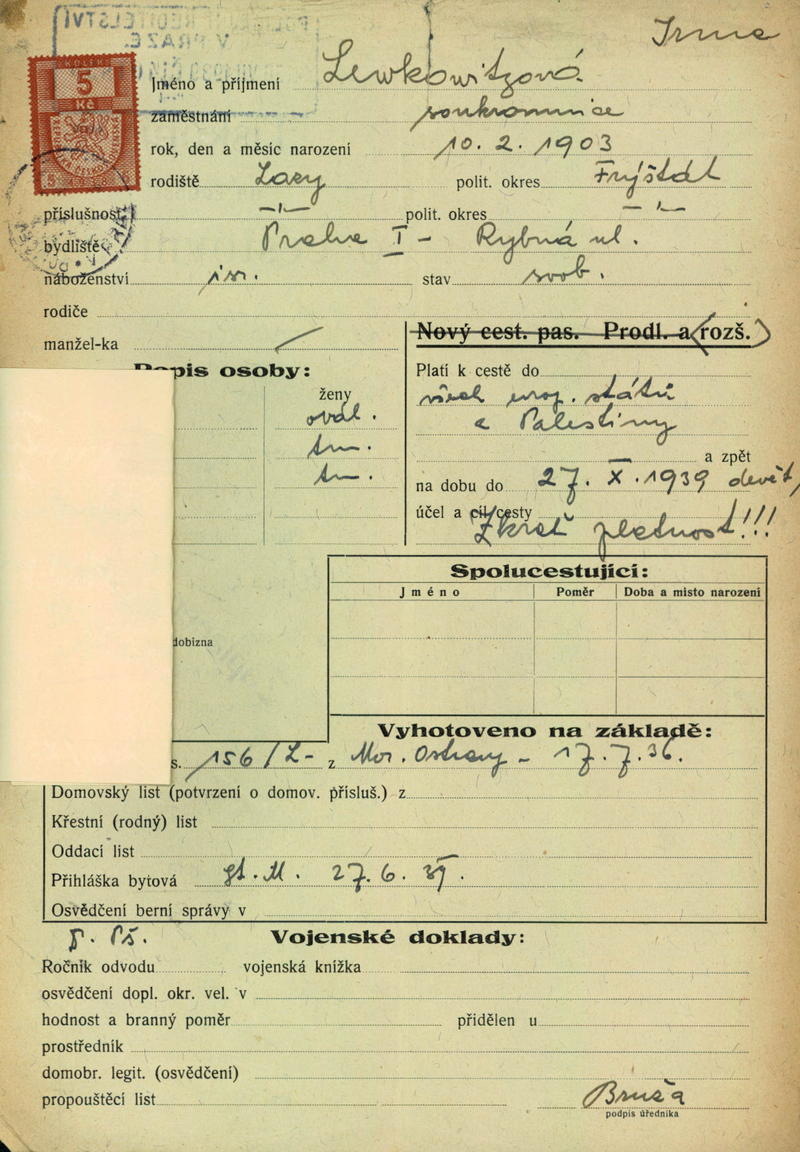 Irma
KOLEK
5
Kč
Jméno a příjmení Lewkowitzová
zaměstnání soukromnice
rok, den a měsíc narození 10. 2. 1903
rodiště Lazy polit. okres Fryštát
příslušnost -"- polit. okres -"-
bydliště Praha I - Rybná ul.
náboženství stav svob.
rodiče
manžel-ka /
Nový cest. pas. Prodl. a rozš.
Popis osoby:
Platí k cestě do
ženy
všech evrop. států
ovál.
a Palestiny
— a zpět
na dobu do 27. X. 1939
účel a cíl cesty
!!!
Spolucestující:
Jméno Poměr Doba a místo narození
dobizna
Vyhotoveno na základě:
s. 156/Z- z Mor. Ostravy - 17.7.36.
Domovský list (potvrzení o domov. přísluš.) z
Křestní (rodný) list
Oddací list
Přihláška bytová 27. 6.
Osvědčení berní správy v
Vojenské doklady:
Ročník odvodu vojenská knížka
osvědčení dopl. okr. vel. v
hodnost a branný poměr přidělen u
prostředník
domobr. legit. (osvědčení)
propouštěcí list
podpis úředníka